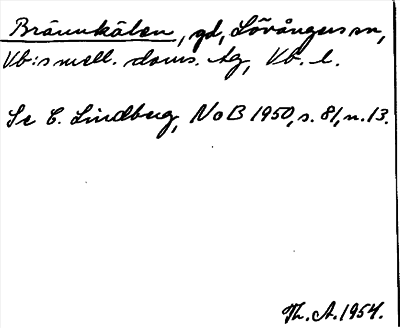 Brännkälen, gd, Lövångers sn,
Vb:s mell. doms. tg, Vb. l.
Se E. Lindberg, NoB 1950, s. 81, n. 13.
Th. A. 1954.